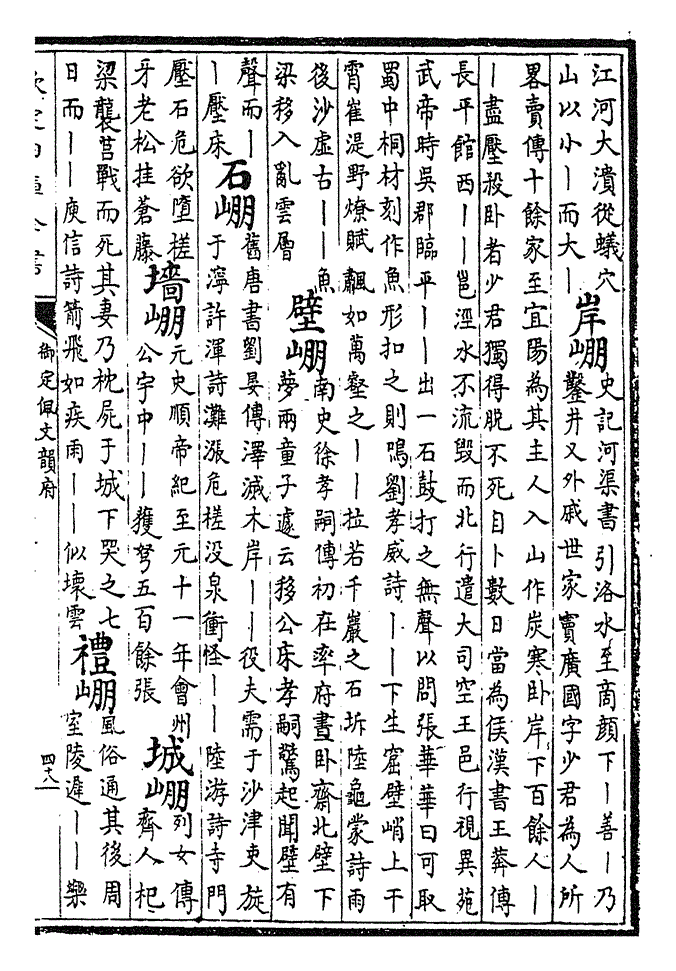 江河大潰從蟻穴
山以小丨而大丨
岸崩
史記河渠書引洛水至商顔下丨善丨乃
鑿井又外戚世家竇廣國字少君為人所
畧賣傳十餘家至宜陽為其主人入山作炭寒卧岸下百餘人丨
丨盡壓殺卧者少君獨得脱不死自卜數日當為侯漢書王莽傳
長平館西丨丨邕涇水不流毁而北行遣大司空王邑行視異苑
武帝時吳郡臨平丨丨出一石鼓打之無聲以問張華華曰可取
蜀中桐材刻作魚形扣之則鳴劉孝威詩丨丨下生窟壁峭上干
霄崔湜野燎賦飄如萬壑之丨丨拉若千巖之石坼陸龜蒙詩雨
後沙虚古丨丨魚
梁移入亂雲層
壁崩
南史徐孝嗣傳初在率府晝卧齋北壁下
夢兩童子遽云移公床孝嗣驚起聞壁有
聲而丨
丨壓床
石崩
舊唐書劉晏傳澤滅木岸丨丨役夫需于沙津吏旋
于濘許渾詩灘漲危槎没泉衝怪丨丨陸游詩寺門
壓石危欲墮槎
牙老松挂蒼藤
墻崩
元史順帝紀至元十一年會州
公宇中丨丨獲弩五百餘張
城崩
列女傳
齊人杞
梁襲莒戰而死其妻乃枕屍于城下哭之七
日而丨丨庾信詩箭飛如疾雨丨丨似壊雲
禮崩
風俗通其後周
室陵遲丨丨樂
欽定四庫全書
御定佩文韻府
四十八